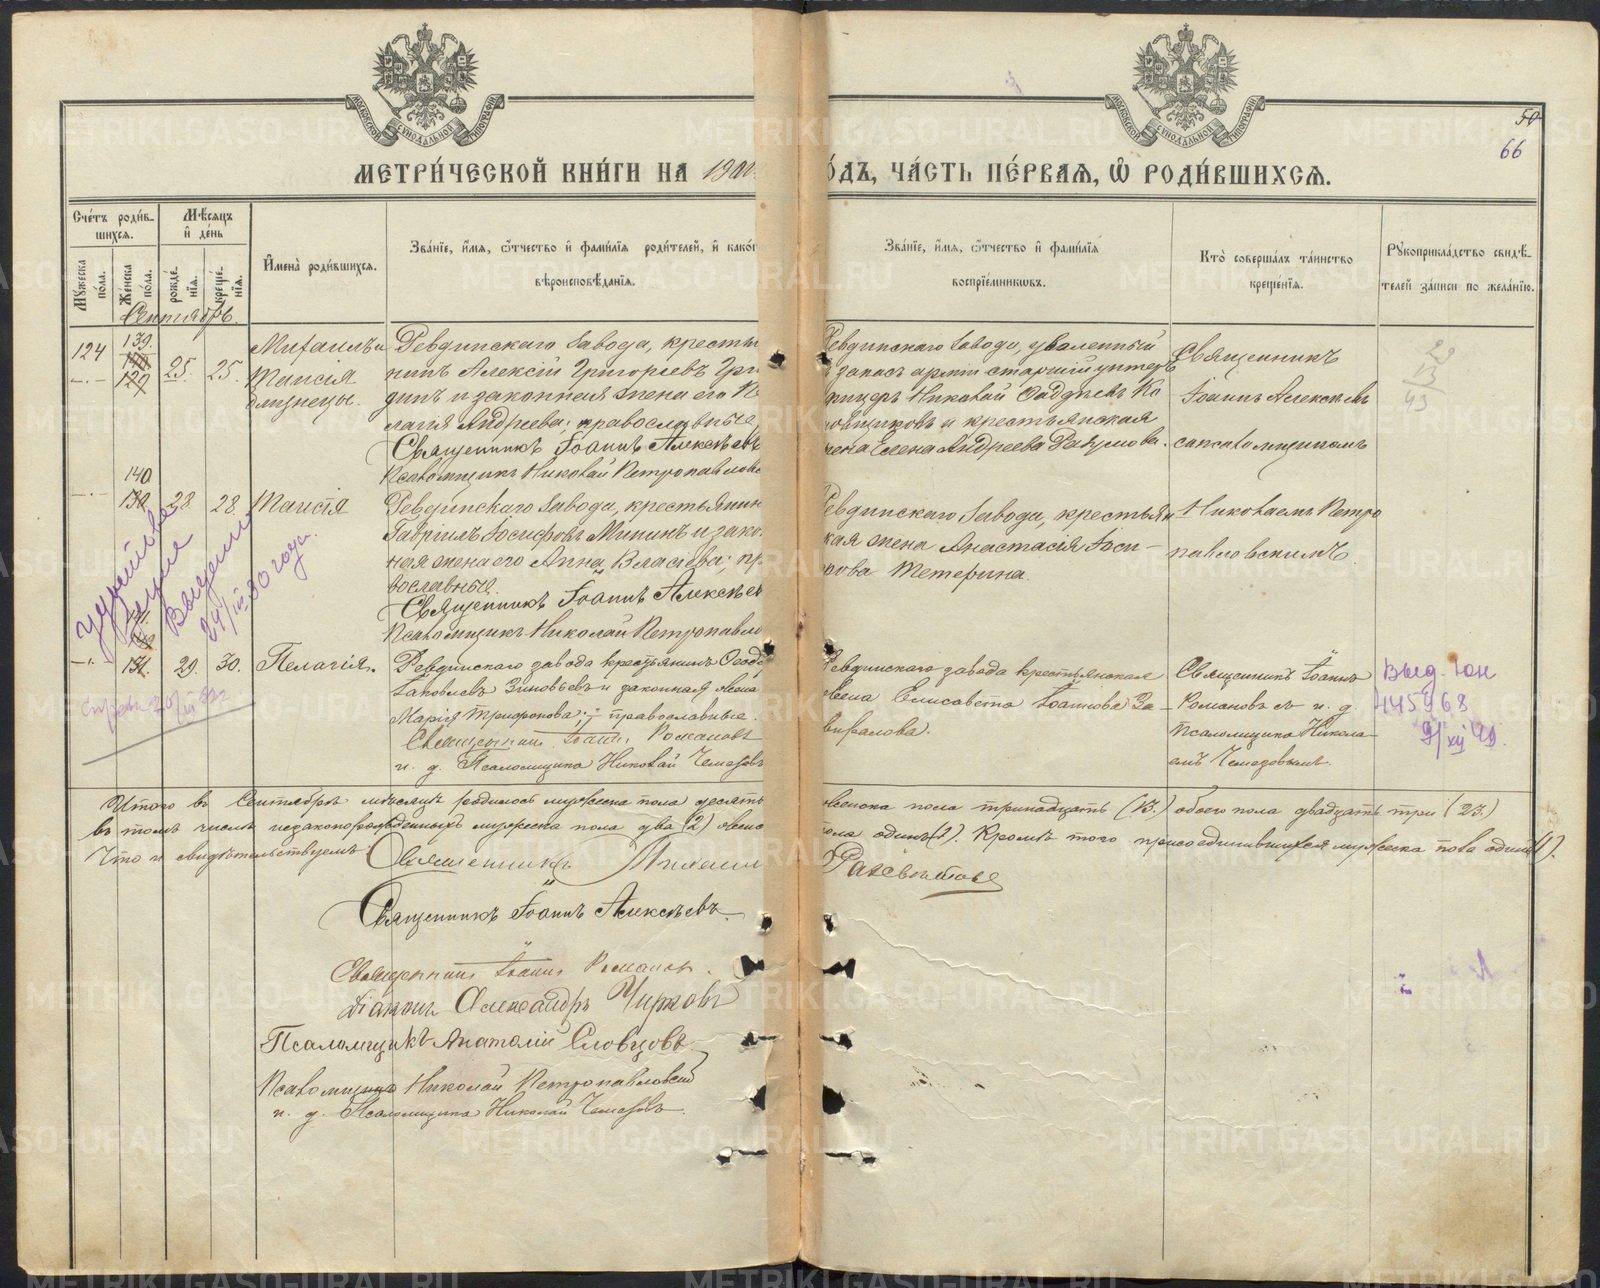 МЕТРИ́ЧЕСКОЙ КНИ́ГИ НА 1900
О́ДЪ, ЧА́СТЬ ПЕ́РВАѦ, Ѡ РОДИ́ВШИХСѦ.
50
66
Сче́тъ роди́вшихсѧ.
Мѣ́сѧцъ и де́нь
Имена̀ роди́вшихсѧ.
Зва́нїе, и́мѧ, ѻ́тчество и фами́лїѧ роди́телей, и како́г
вѣроисповѣ́данїѧ.
Му́жеска по́ла.
Же́нска по́ла.
рожде́нїѧ.
креще́нїѧ.
Зва́нїе, и́мѧ, ѻ́тчество и фами́лїѧ
воспрїе́мниковъ.
Кто̀ соверша́лъ та́инство
креще́нїѧ.
Рꙋкоприкла́дство свидѣ́телей за́писи по жела́нїю.
Сентябрь.
124
139.
25. 25.
Михаилъ и
Таисія
близнецы.
Ревдинскаго завода, крестья
нинъ Алексій Григорьевъ Гри
динъ и законная жена его Пе
лагія Андреева; православные
Священникъ Іоаннъ Алексѣевъ
Псаломщикъ Николай Петропавловс
Ревдинскаго завода, уволенный
въ запасъ арміи старшій унтеръ
фицеръ Николай Фаддѣевъ Ко
новщиковъ и крестьянская
жена Елена Андреева
Священникъ
Іоаннъ Алексѣевъ
съ псаломщикомъ
Николаемъ Петро
павловскимъ.
140
28 28.
Таисія
Ревдинскаго завода, крестьянин
Гавріилъ Іосифовъ Мининъ и закон
ная жена его Анна Власіева; пр
вославные.
Священникъ Іоаннъ Алексѣев
Псаломщикъ Николай Петропавло
Ревдинскаго завода, крестьян
кая жена Анастасія Іоси-
фова Тетерина.
Выдано
24/III 30 года.
29. 30.
Пелагія.
Ревдинскаго завода крестьянинъ Ѳеодо
Іаковлевъ Зиновьевъ и законная жена
Марія Трифонова; православные.
Священникъ Іоаннъ Романовъ
и. д. Псаломщика Николай Чемезовъ
Ревдинскаго завода крестьянская
жена Елисавета Іоаннова За-
виралова.
Священникъ Іоаннъ
Романовъ съ и. д.
псаломщика Никола-
емъ Чемезовымъ.
Выд.
445968
9/XII 49.
Итого въ Сентябрѣ мѣсяцѣ родилось мужеска пола десять
женска пола тринадцать (13.) обоего пола двадцать три (23.)
въ томъ числѣ незаконорожденныхъ мужеска пола два (2) женс
пола одинъ (1). Кромѣ того присоединившихся мужеска пола одинъ (1).
Что и свидѣтельствуемъ: Священникъ
Священникъ Іоаннъ Алексѣевъ.
Священникъ Іоаннъ Романовъ.
Діаконъ Александръ Чирковъ
Псаломщикъ Анатолій Словцовъ
Псаломщикъ Николай Петропавловскій
и. д. Псаломщика Николай Чемезовъ.